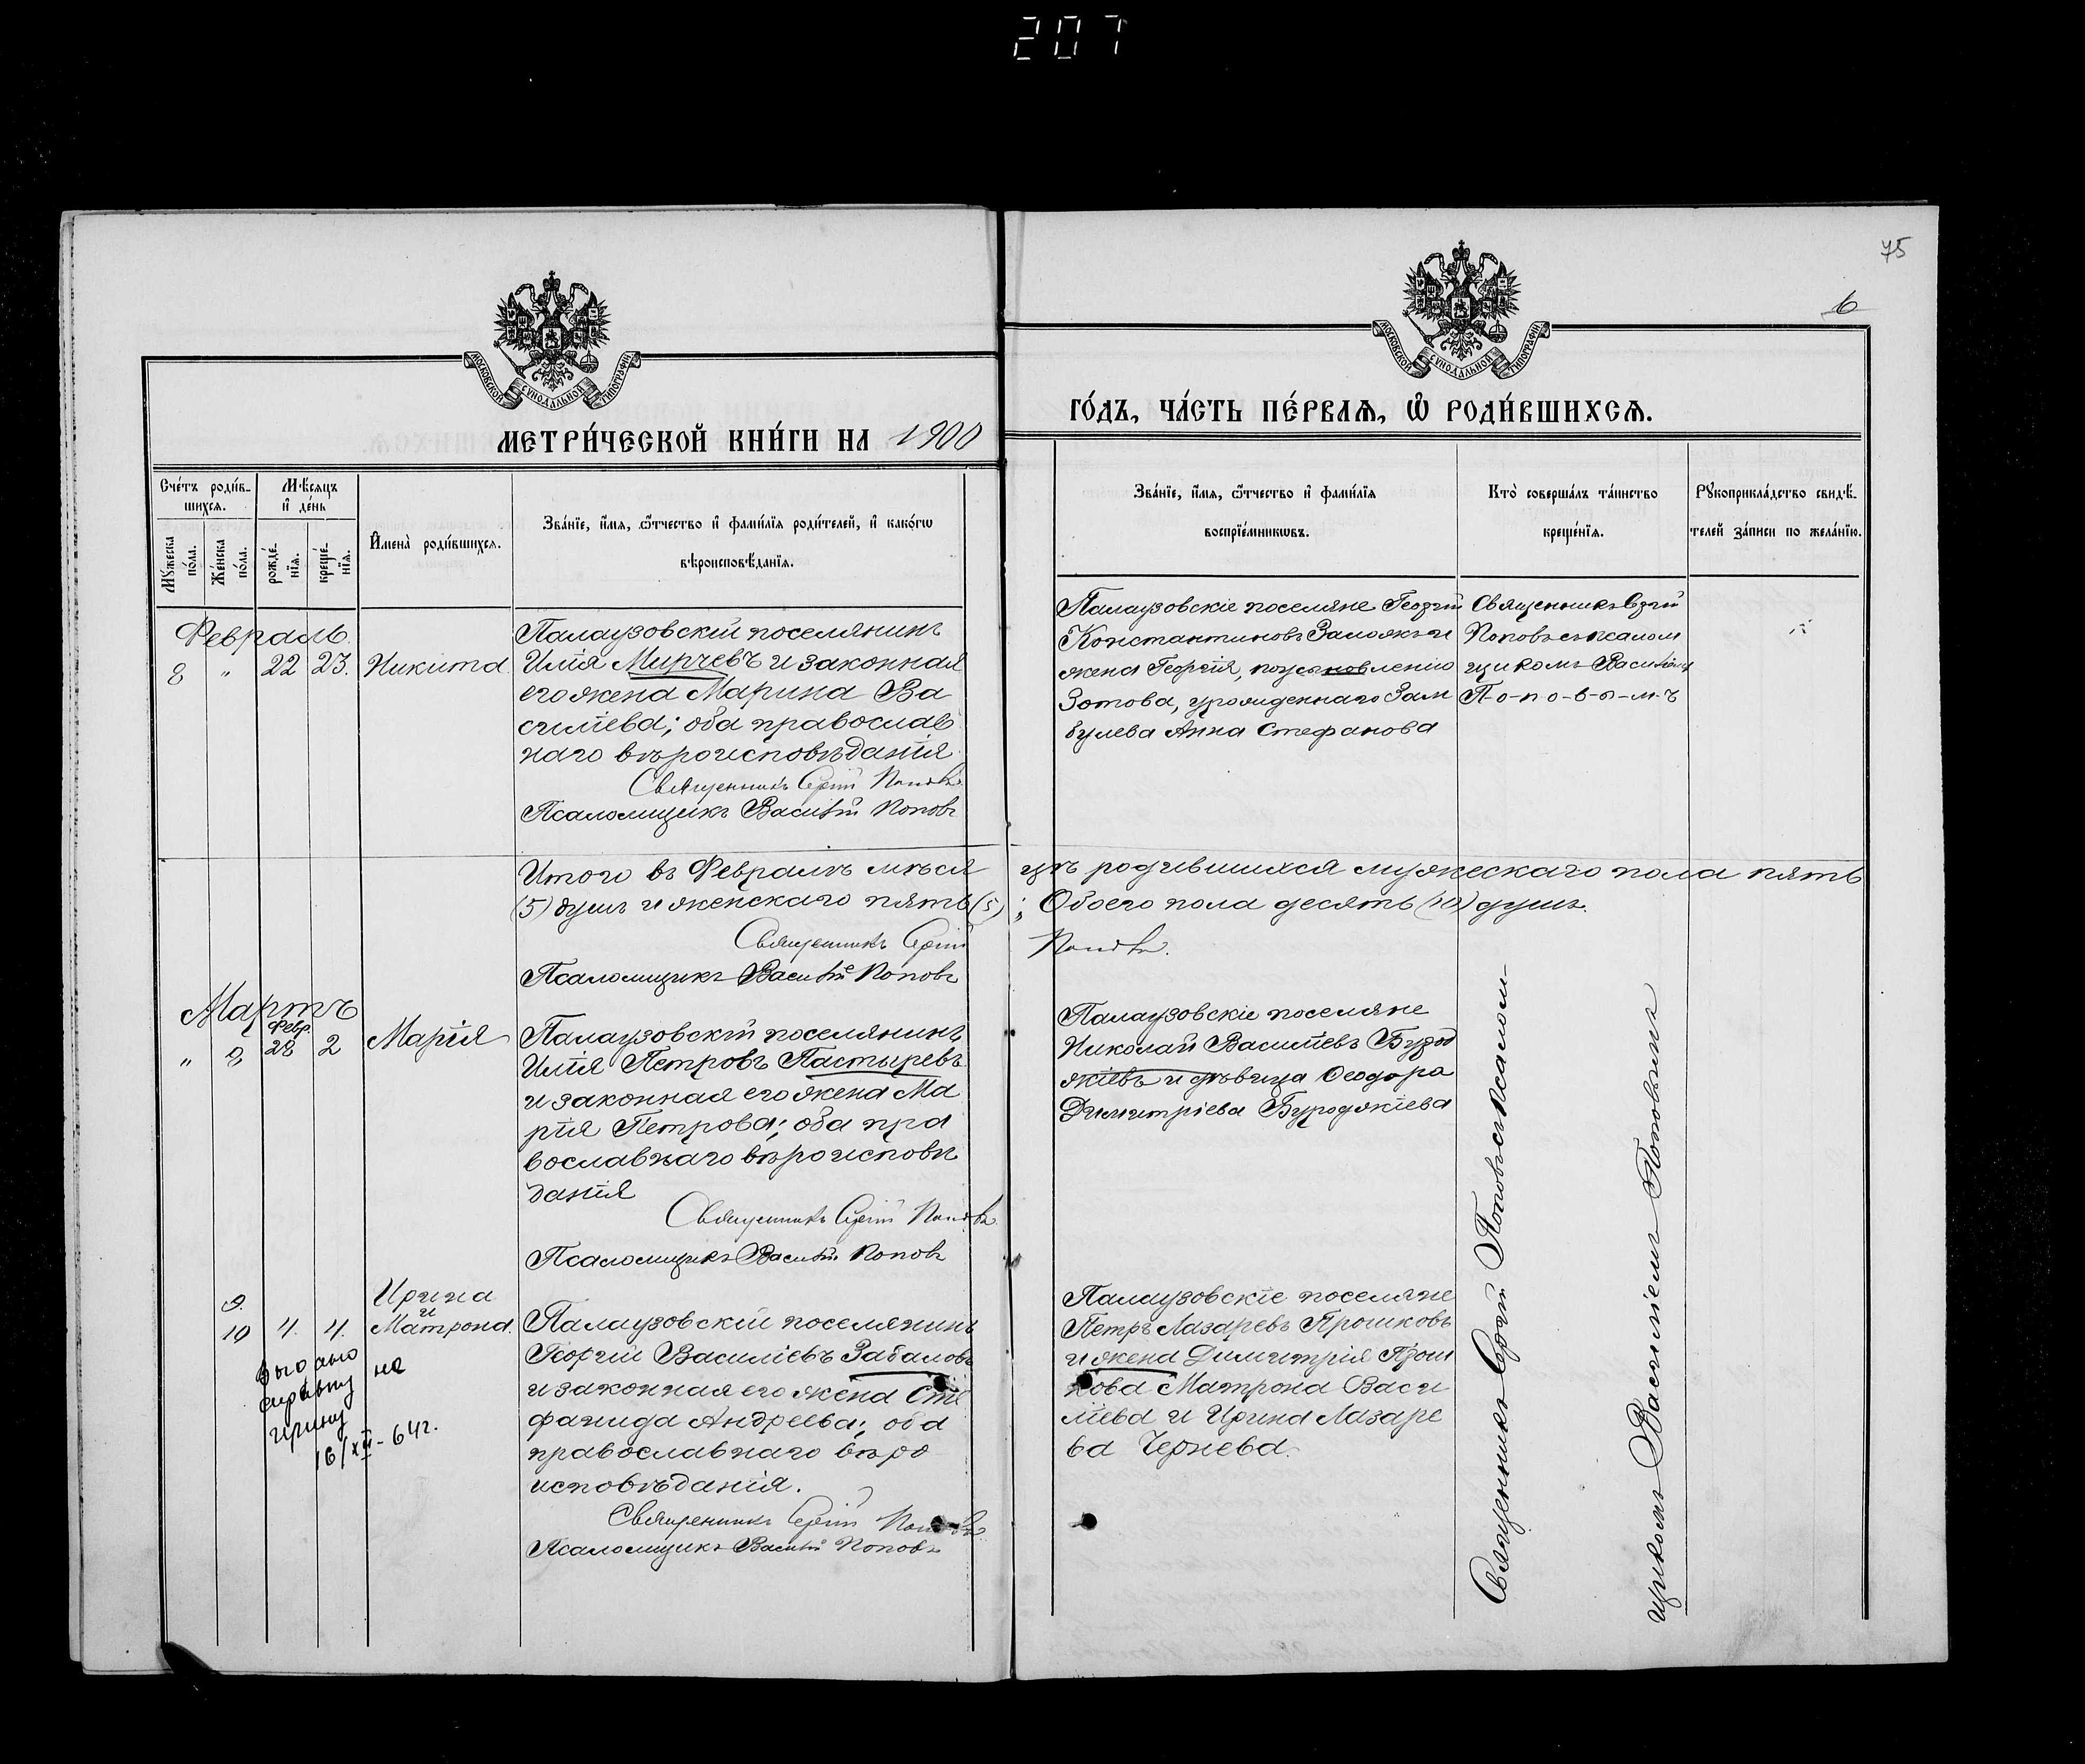 207
75
6
МОСКОВСКОЙ СѴНОДАЛЬНОЙ ТИПОГРАФІИ
МОСКОВСКОЙ СѴНОДАЛЬНОЙ ТИПОГРАФІИ
МЕТРИ́ЧЕСКОЙ КНИ́ГИ НА 1900
ГО́ДЪ, ЧА́СТЬ ПЕ́РВАѦ, Ѿ РОДИ́ВШИХСѦ.
Сче́тъ роди́в-
шихсѧ.
Мѣ́сѧцъ
и҆ де́нь
Мꙋ́жеска
по́ла.
Же́нска
по́ла.
рожде́-
нїѧ.
креще́-
нїѧ.
И҆мена̀ роди́вшихсѧ.
Зва́нїе, и҆́мѧ, ѻ҆́тчество и҆ фами́лїѧ роди́телей, и҆ како́гѡ
вѣроисповѣ́данїѧ.
Зва́нїе, и҆́мѧ, ѻ҆́тчество и҆ фами́лїѧ
воспрїе́мникѡвъ.
Кто̀ соверша́лъ та́инство
креще́нїѧ.
Рꙋкоприкла́дство свидѣ́-
телей за́писи по жела́нїю.
Февраль.
8 " 22 23. Никита
Палаузовскій поселянинъ
Илія Мирчевъ и законная
его жена Марина Ва
силіева; оба православ
наго вѣроисповѣданія
Священникъ Сергій Поповъ
Псаломщикъ Василій Поповъ
Палаузовскіе поселяне Георгій
Константиновъ и
жена Георгія, по усыновленію
Зотова, урожденнаго Зам
булева Анна Стефанова
Священникъ Сергій
Поповъ съ псалом
щикомъ Василіемъ
П-о-п-о-в-ы-м-ъ
Итого въ Февралѣ мѣся цѣ родившихся мужескаго пола пять
(5) душъ и женскаго пять (5); Обоего пола десять (10) душъ.
Священникъ Сергій Поповъ.
Псаломщикъ Василій Поповъ
Мартъ
Февр.
" 8 28 2 Марія
Палаузовскій поселянинъ
Илія Петровъ Пастыревъ
и законная его жена Ма
рія Петрова; оба пра
вославнаго вѣроисповѣ
данія
Священникъ Сергій Поповъ
Псаломщикъ Василій Поповъ
Палаузовскіе поселяне
Николай Василіевъ Бурод
жіевъ и дѣвица Ѳеодора
Димитріева Буроджіева
9. Ирина
и
10 4. 4. Матрона.
Палаузовскій поселянинъ
Георгій Василіевъ Забаловъ
и законная его жена Сте
фанида Андреева; оба
православнаго вѣро
исповѣданія.
Священникъ Сергій Поповъ
Псаломщикъ Василій Поповъ
Выдано
справку на
Ирину
16/XII-64г.
Палаузовскіе поселяне
Петръ Лазаревъ Прошковъ
и жена Димитрія Прош
кова Матрона Васи
ліева и Ирина Лазаре
ва Чернева.
Священникъ Сергій Поповъ съ псалом-
щикомъ Василіемъ Поповымъ